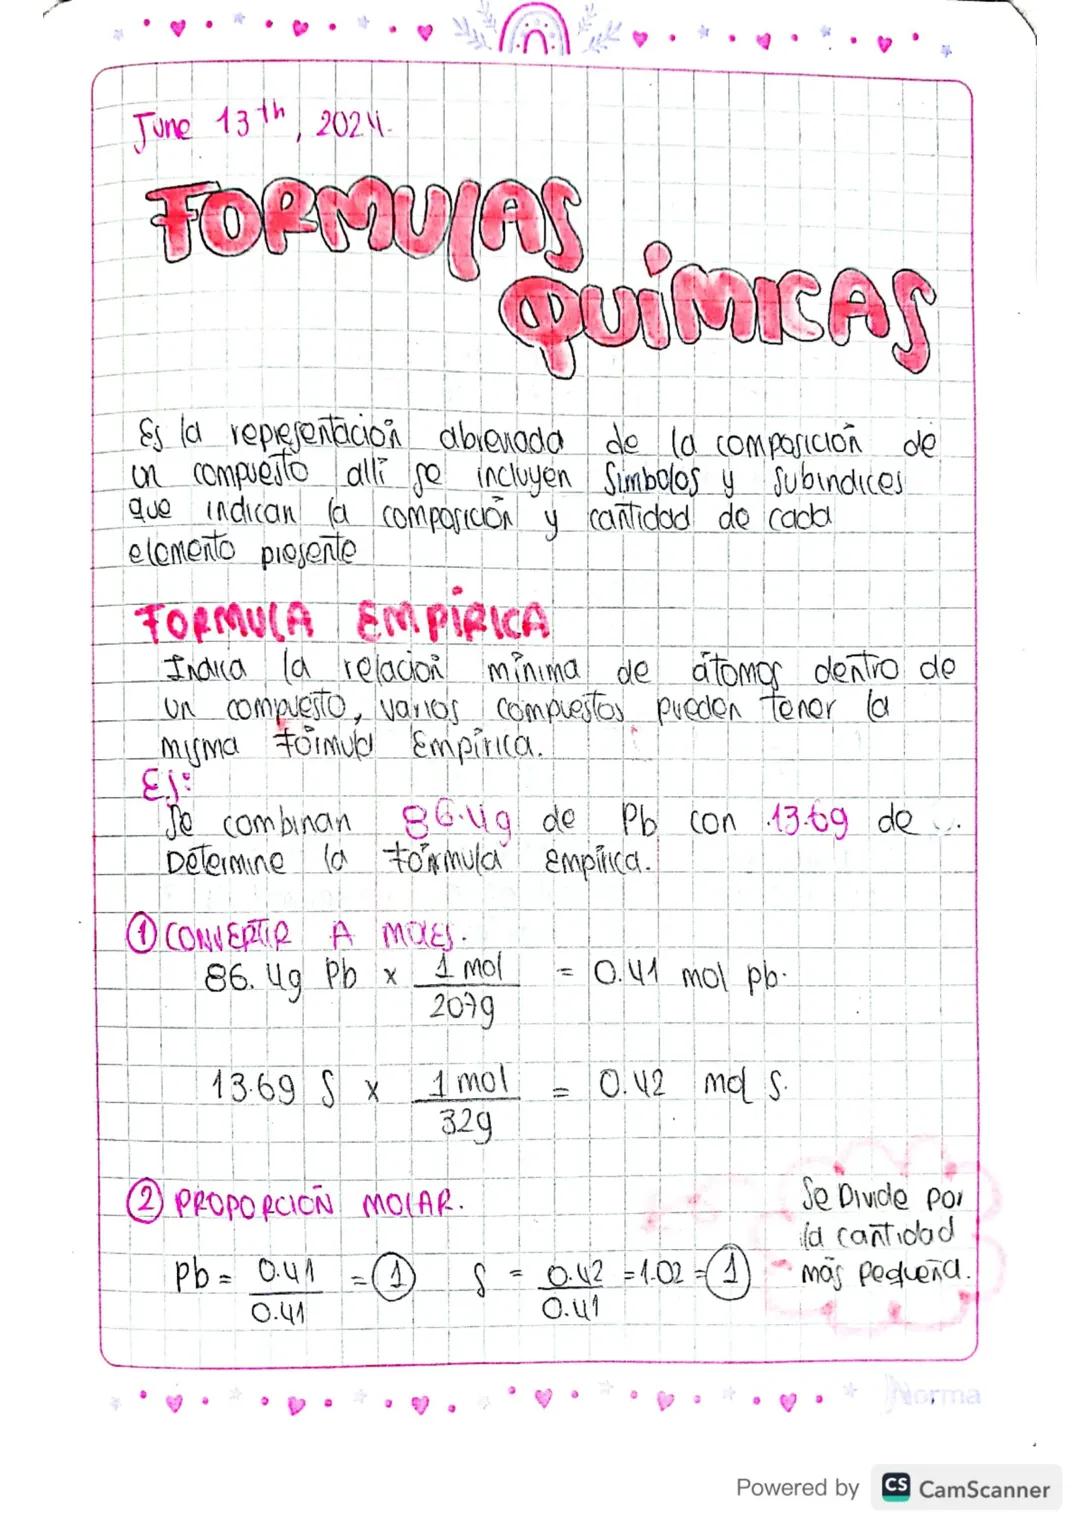 June 13th, 2024.
FORMULAS
QUÍMICAS
Es la representación abreviada de la composición de
un compuesto allí se incluyen Símbolos y Subíndices
que indican la composición y cantidad de cada
elemento presente
FORMULA EMPÍRICA
Indica la relación mínima de átomos dentro de
un compuesto, varios compuestos pueden tener la
misma fórmula Empírica.
Ej:
Se combinan 86.4g de Pb con 13.6g de
Determine la fórmula empírica.
① CONVERTIR A MOLES.
86.4g Pb x 1 mol = 0.41 mol pb.
207g
13.6g S x 1 mol = 0.42 mol S.
32g
② PROPORCIÓN MOLAR.
Se Divide por
la cantidad
más pequeña.
Pb = 0.41 = ① S = 0.42 = 1.02 = ①
0.41 0.41
Norma
Powered by CS CamScanner